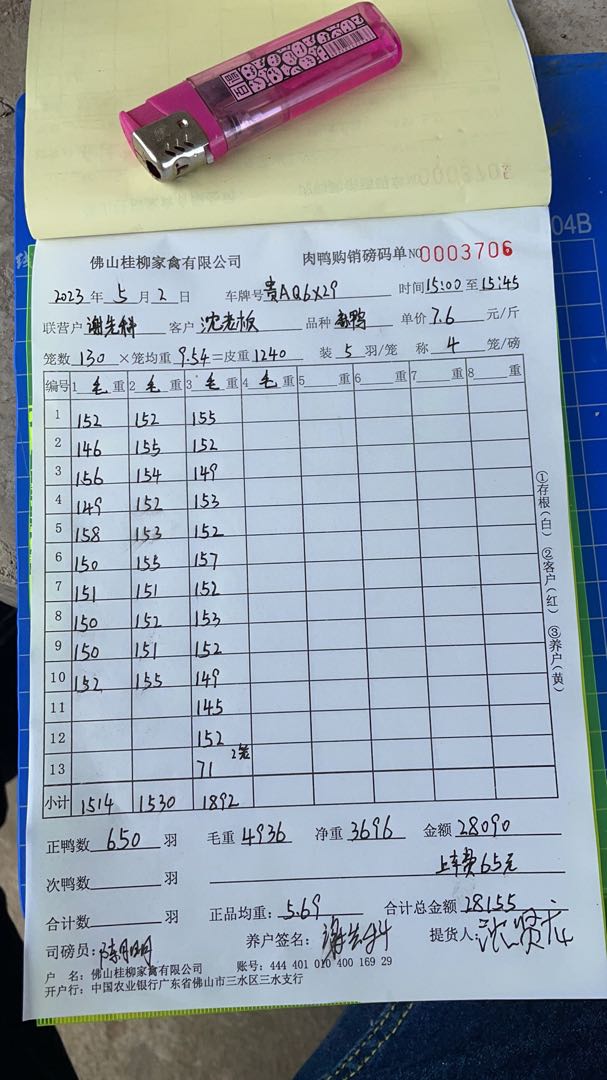 04B
佛山桂柳家禽有限公司 肉鸭购销磅码单 NO 0003706
2023年5月2日 车牌号 贵AQ6X29 时间15:00至15:45
联营户 谢先科 客户 沈老板 品种 鸭 单价7.6元/斤
笼数 130 ×笼均重 9.54=皮重1240 装 5 羽/笼 称 4 笼/磅
编号 1 毛 重 2 毛 重 3 毛 重 4 毛 重 5 重 6 重 7 重 8 重
1 152 152 155
2 146 155 152
3 156 154 149
4 149 152 153
5 158 153 152
6 150 155 157
7 151 151 152
8 150 152 153
9 150 151 152
10 152 155 149
11 145
12 152
13 71 2笼
小计 1514 1530 1892
①存根(白) ②客户(红) ③养户(黄)
正鸭数 650 羽 毛重 4936 净重 3696 金额 28090
次鸭数 羽 上车费65元
合计数 羽 正品均重: 5.69 合计总金额 28155
司磅员: 养户签名: 谢先科 提货人: 沈贤龙
户 名: 佛山桂柳家禽有限公司 账号: 444 401 010 400 169 29
开户行: 中国农业银行广东省佛山市三水区三水支行